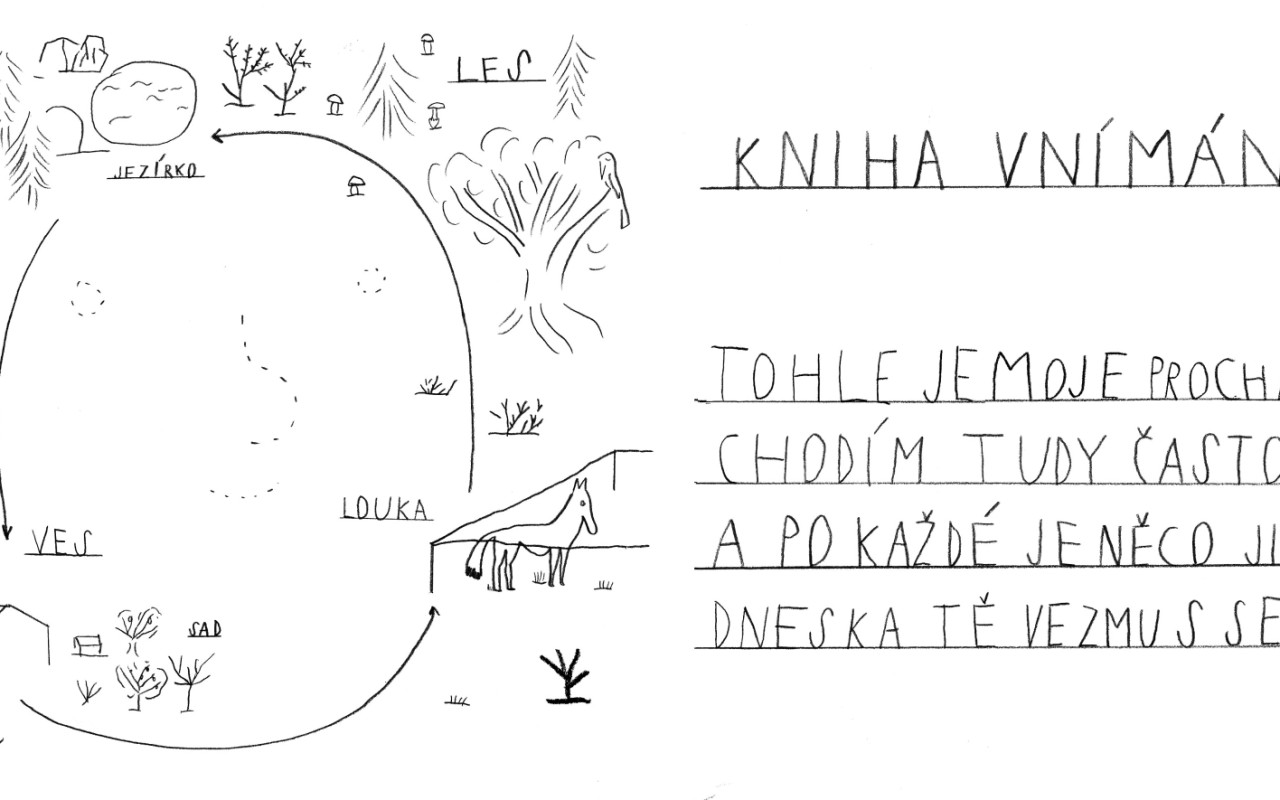 LES
JEZÍRKO
LOUKA
VES
SAD
KNIHA VNÍMÁN
TOHLE JE MOJE PROCHÁ
CHODÍM TUDY ČASTO
A PO KAŽDÉ JE NĚCO JI
DNESKA TĚ VEZMU S SE